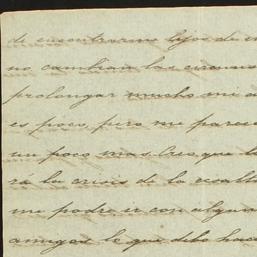 de encontrarme lejos de
no cambian las circuns
prolongar mucho mi
es poco, pero me parece
un poco mas. Creo que
rá la crisis de la
me podre ir con algun
amigas lo que debo hace